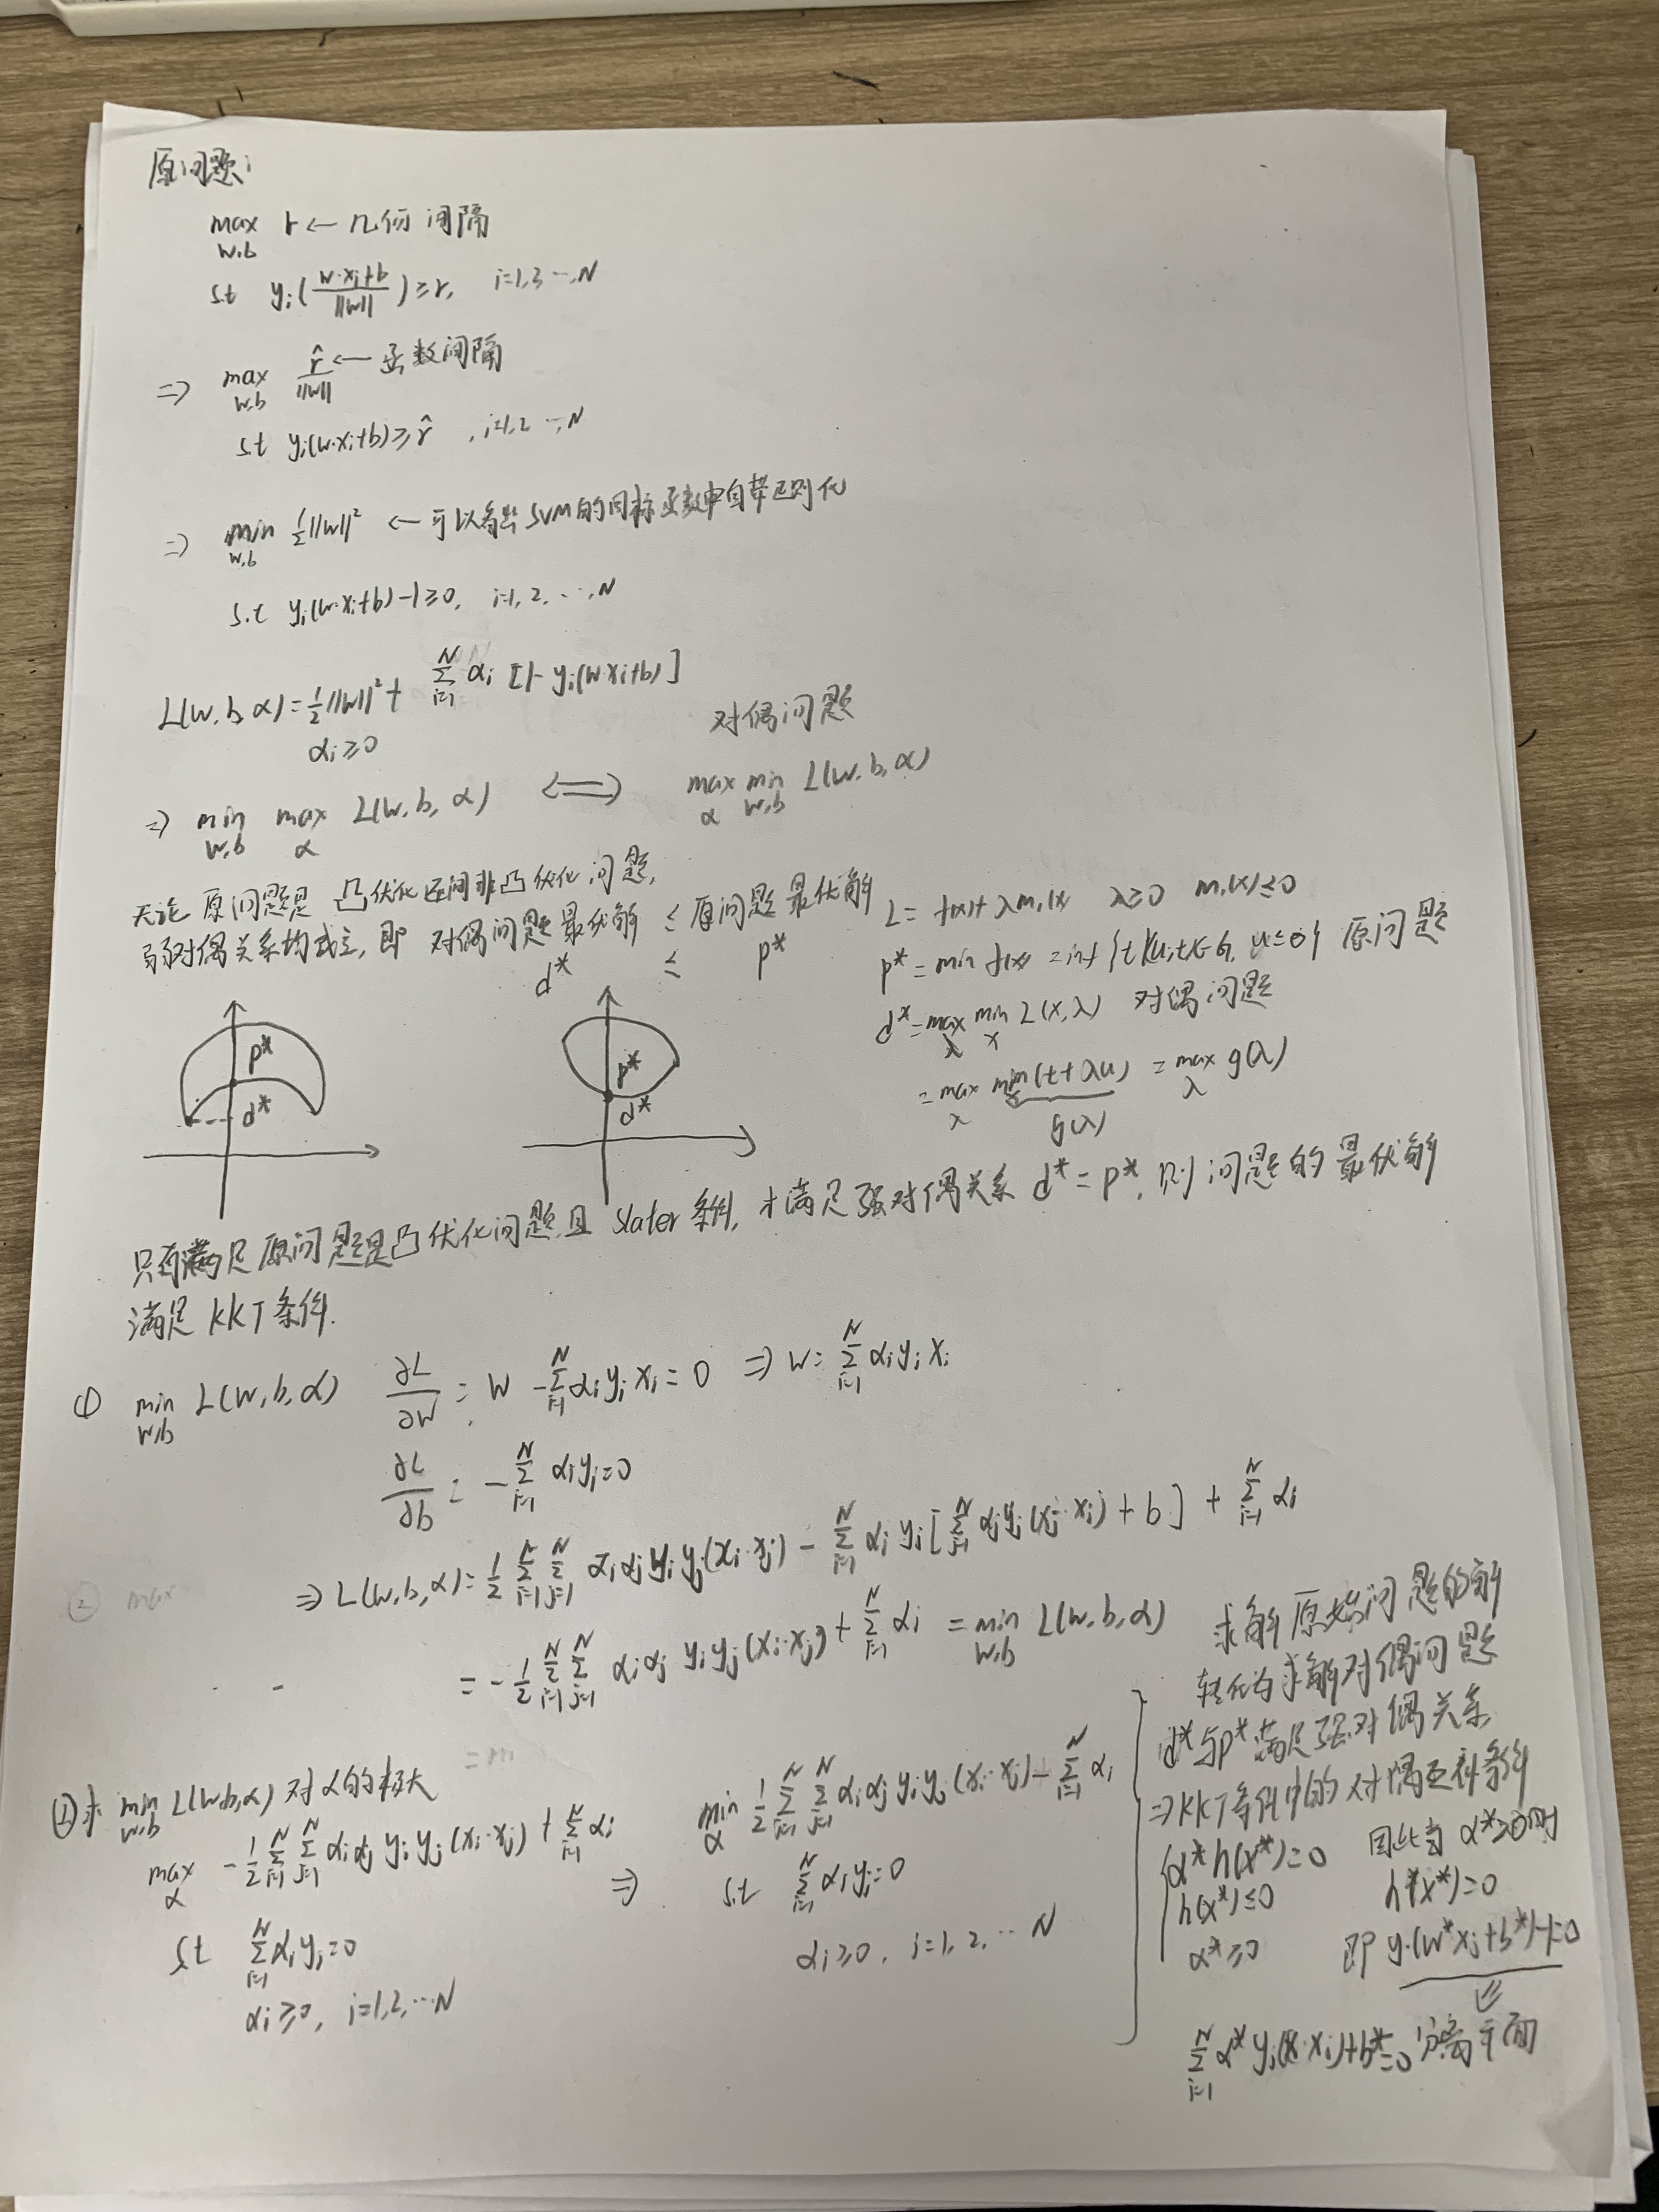 原问题:
max r ← 几何间隔
w,b
s.t yᵢ( (w·xᵢ+b)/||w|| ) ≥ r, i=1,3 ⋯,N
⇒ max r̂/||w|| ← 函数间隔
w,b
s.t yᵢ(w·xᵢ+b) ≥ r̂ , i=1,2 ⋯,N
⇒ min ½||w||² ← 可以看出SVM的目标函数中自带正则化
w,b
s.t yᵢ(w·xᵢ+b)-1≥0, i=1,2,⋯,N
L(w,b,α)=½||w||²+ Σᵢ₌₁ᴺ αᵢ [1-yᵢ(w·xᵢ+b)]
αᵢ≥0
对偶问题
⇒ min max L(w,b,α) ⟺ max min L(w,b,α)
w,b α α w,b
无论原问题是凸优化还是非凸优化问题,
弱对偶关系均成立,即 对偶问题最优解 ≤ 原问题最优解
d* ≤ p*
L= f(x)+λm₁(x) λ≥0 m₁(x)≤0
p*=min f(x) =inf{t|(u,t)∈G, u≤0} 原问题
d*=max min L(x,λ) 对偶问题
λ x
=max min(t+λu) =max g(λ)
λ λ
g(λ)
p*
d*
p*
d*
只有满足原问题是凸优化问题且 slater 条件,才满足强对偶关系 d*=p*,则问题的最优解
满足 KKT 条件.
① min L(w,b,α) ∂L/∂w = w -Σᵢ₌₁ᴺ αᵢyᵢxᵢ=0 ⇒ w=Σᵢ₌₁ᴺ αᵢyᵢxᵢ
w,b
∂L/∂b = -Σᵢ₌₁ᴺ αᵢyᵢ=0
② max
⇒ L(w,b,α)=½ Σᵢ₌₁ᴺ Σⱼ₌₁ᴺ αᵢαⱼyᵢyⱼ(xᵢ·xⱼ) - Σᵢ₌₁ᴺ αᵢyᵢ[Σⱼ₌₁ᴺ αⱼyⱼ(xⱼ·xᵢ)+b] + Σᵢ₌₁ᴺ αᵢ
= -½ Σᵢ₌₁ᴺ Σⱼ₌₁ᴺ αᵢαⱼ yᵢyⱼ(xᵢ·xⱼ)+Σᵢ₌₁ᴺ αᵢ = min L(w,b,α)
w,b
②求 min L(w,b,α) 对α的极大
w,b
max -½ Σᵢ₌₁ᴺ Σⱼ₌₁ᴺ αᵢαⱼ yᵢyⱼ(xᵢ·xⱼ) + Σᵢ₌₁ᴺ αᵢ
α
s.t Σᵢ₌₁ᴺ αᵢyᵢ=0
αᵢ≥0, i=1,2,⋯N
⇒ min ½ Σᵢ₌₁ᴺ Σⱼ₌₁ᴺ αᵢαⱼyᵢyⱼ(xᵢ·xⱼ)-Σᵢ₌₁ᴺ αᵢ
α
s.t Σᵢ₌₁ᴺ αᵢyᵢ=0
αᵢ≥0, i=1,2,⋯N
求解原始问题的解
转化为求解对偶问题
d*与p*满足强对偶关系
⇒KKT条件中的对偶互补条件
α*h(x*)=0 因此当 α*>0时
h(x*)≤0 h*(x*)=0
α*≥0 即 yⱼ(w*xⱼ+b*)-1=0
Σᵢ₌₁ᴺ α*yᵢ(x·xᵢ)+b*=0 分离平面